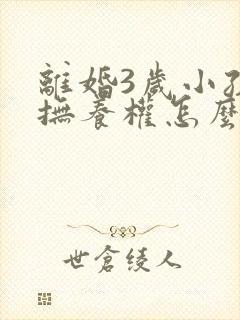 離婚3歲小孩
撫養權怎麼
世倉綾人